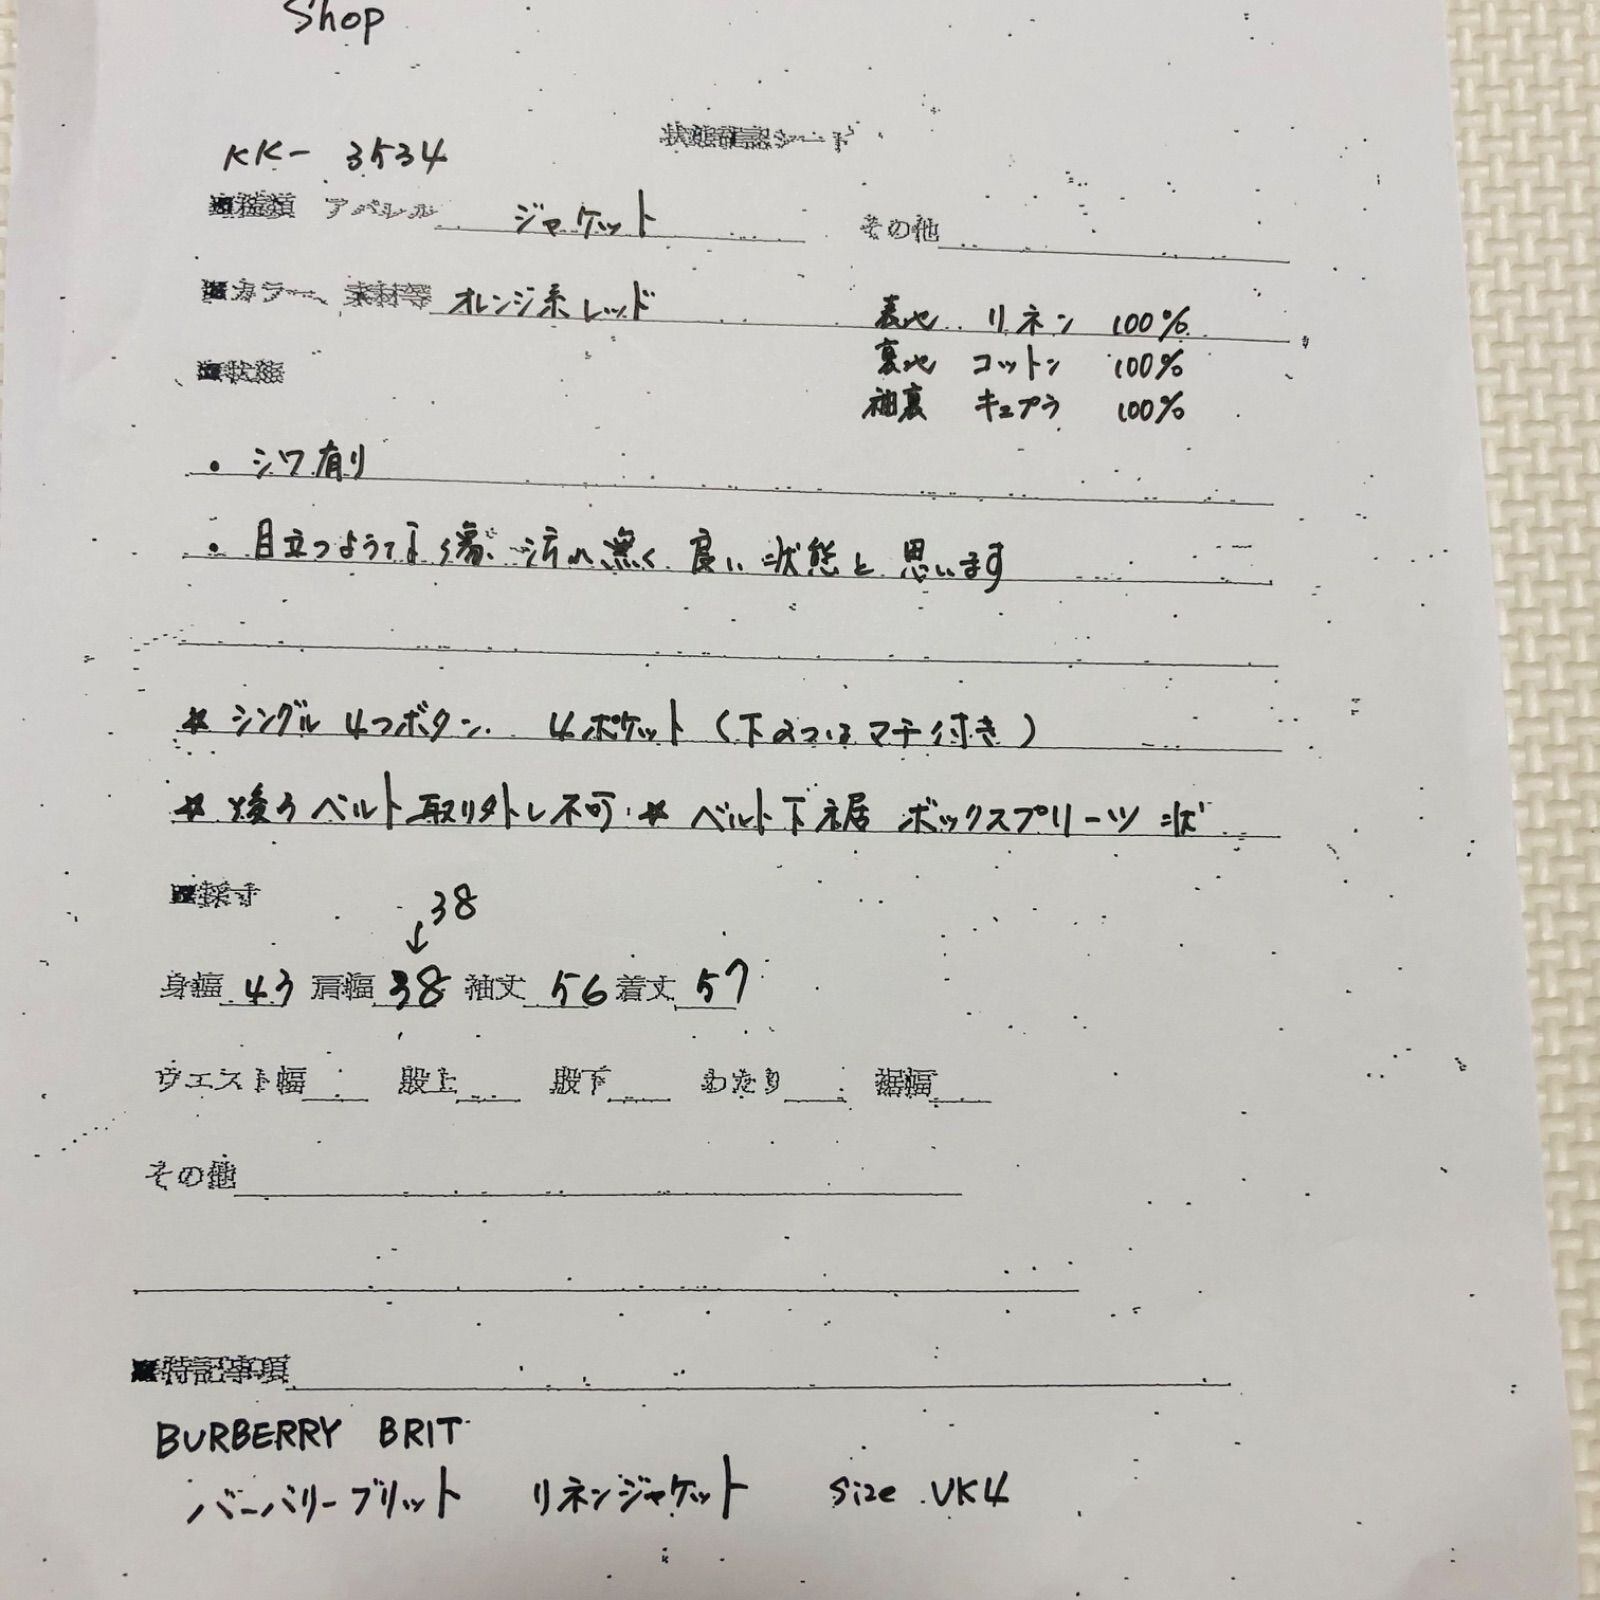 Shop
状態確認シート
KK- 3534
■種類 アパレル ジャケット その他
■カラー、素材等 オレンジ系レッド 表地 リネン 100%
裏地 コットン 100%
袖裏 キュプラ 100%
■状態
・シワ有り
・目立つような傷、汚れ無く良い状態と思います
* シングル 4つボタン. 4ポケット(下2つはマチ付き)
* 後ろベルト取り外し不可 * ベルト下裾 ボックスプリーツ状
■採寸
38
↓
身幅 43 肩幅 38 袖丈 56 着丈 57
ウエスト幅 股上 股下 わたり 裾幅
その他
■特記事項
BURBERRY BRIT
バーバリーブリット リネンジャケット size .UK4